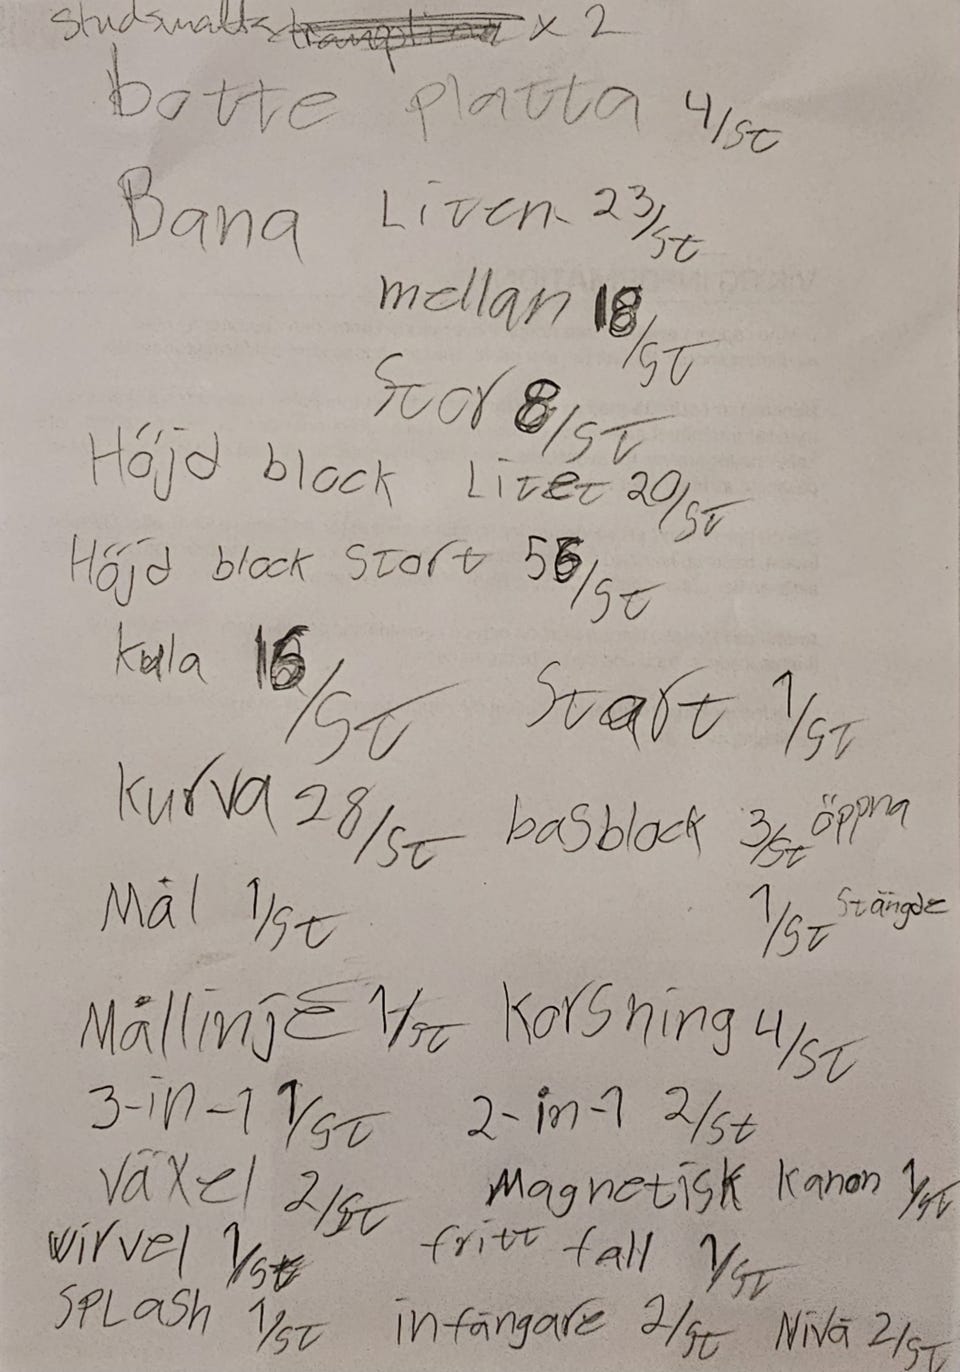 studsmatta x 2
botte platta 4/st
Bana Liten 23/st
mellan 18/st
Stor 8/st
Höjd block Litet 20/st
Höjd block Stort 56/st
kula 16/st Start 1/st
kurva 28/st basblock 3/st öppna
Mål 1/st 1/st Stängde
Mållinje 1/st Korsning 4/st
3-in-1 1/st 2-in-1 2/st
växel 2/st Magnetisk kanon 1/st
wirvel 1/st fritt fall 1/st
SPLash 1/st infångare 2/st Nivå 2/st